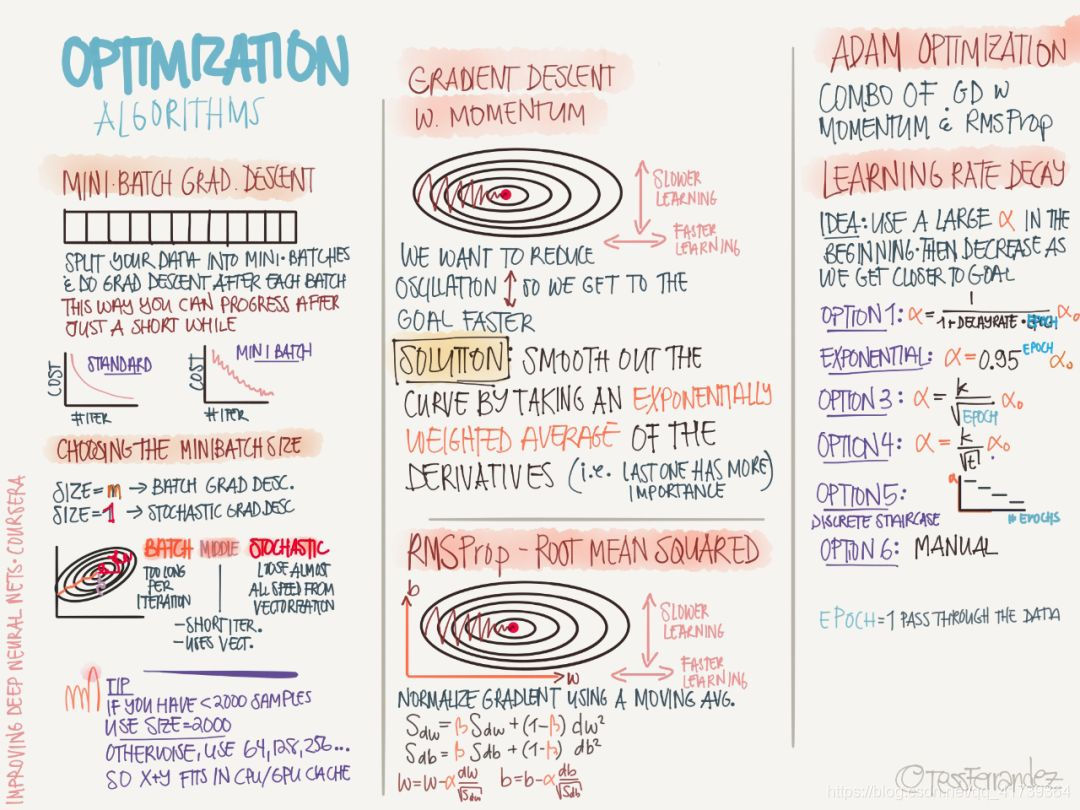 OPTIMIZATION
ALGORITHMS
MINI·BATCH GRAD. DESCENT
SPLIT YOUR DATA INTO MINI·BATCHES
& DO GRAD DESCENT AFTER EACH BATCH
THIS WAY YOU CAN PROGRESS AFTER
JUST A SHORT WHILE
COST
STANDARD
# ITER
COST
MINI BATCH
# ITER
CHOOSING THE MINIBATCH SIZE
SIZE=m → BATCH GRAD DESC.
SIZE=1 → STOCHASTIC GRAD.DESC
BATCH MIDDLE STOCHASTIC
TOO LONG
PER
ITERATION
LOOSE ALMOST
ALL SPEED FROM
VECTORIZATION
-SHORT ITER.
-USES VECT.
TIP
IF YOU HAVE <2000 SAMPLES
USE SIZE=2000
OTHERWISE, USE 64,128,256...
SO X+Y FITS IN CPU/GPU CACHE
IMPROVING DEEP NEURAL NETS · COURSERA
GRADIENT DESCENT
W. MOMENTUM
SLOWER
LEARNING
FASTER
LEARNING
WE WANT TO REDUCE
OSCILLATION ↕ SO WE GET TO THE
GOAL FASTER
SOLUTION: SMOOTH OUT THE
CURVE BY TAKING AN EXPONENTIALLY
WEIGHTED AVERAGE OF THE
DERIVATIVES (i.e. LAST ONE HAS MORE
IMPORTANCE)
RMSProp - ROOT MEAN SQUARED
b
SLOWER
LEARNING
FASTER
LEARNING
w
NORMALIZE GRADIENT USING A MOVING AVG.
Sdw = β Sdw + (1-β) dw²
Sdb = β Sdb + (1-β) db²
w=w-α dw/√Sdw b=b-α db/√Sdb
ADAM OPTIMIZATION
COMBO OF GD W
MOMENTUM & RMSProp
LEARNING RATE DECAY
IDEA: USE A LARGE α IN THE
BEGINNING·THEN DECREASE AS
WE GET CLOSER TO GOAL
OPTION 1: α = 1/(1+DECAYRATE·EPOCH) α₀
EXPONENTIAL: α = 0.95^EPOCH α₀
OPTION 3: α = k/√EPOCH α₀
OPTION 4: α = k/√t α₀
OPTION 5:
DISCRETE STAIRCASE
α
# EPOCHS
OPTION 6: MANUAL
EPOCH = 1 PASS THROUGH THE DATA
@TessFerrandez